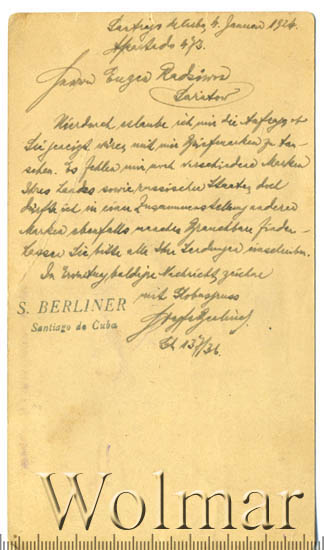 Santiago de Cuba, 4. Januar 1926.
Apartado 473.
Herrn Eugen
Saratow
Hierdurch erlaube ich mir die Anfrage, ob
Sie geneigt wären, mit mir Briefmarken zu tau-
schen. Es fehlen mir noch verschiedene Marken
Ihres Landes sowie russischer Staaten, doch
dürfte ich in einer Zusammenstellung anderer
Marken ebenfalls manches Brauchbare finden.
Lassen Sie bitte alle Ihre Sendungen einschreiben.
In Erwartung baldiger Nachricht, zeichne
mit
S. BERLINER
Santiago de Cuba
Wolmar